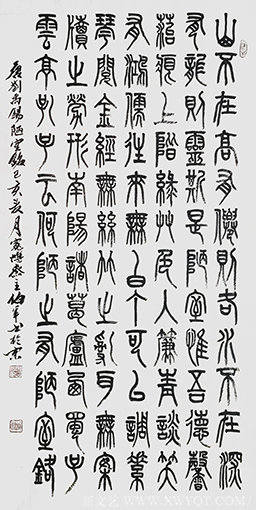 山不在高有僊則名水不在深
有龍則靈斯是陋室惟吾德馨
苔痕上階綠艸色入簾青談笑
有鴻儒往來無白丁可以調素
琴閱金經無絲竹之亂耳無案
牘之勞形南陽諸葛廬西蜀子
雲亭孔子云何陋之有陋室銘
唐劉禹錫陋室銘己亥亥月齋主書於京
WWW.XWYOT.COM